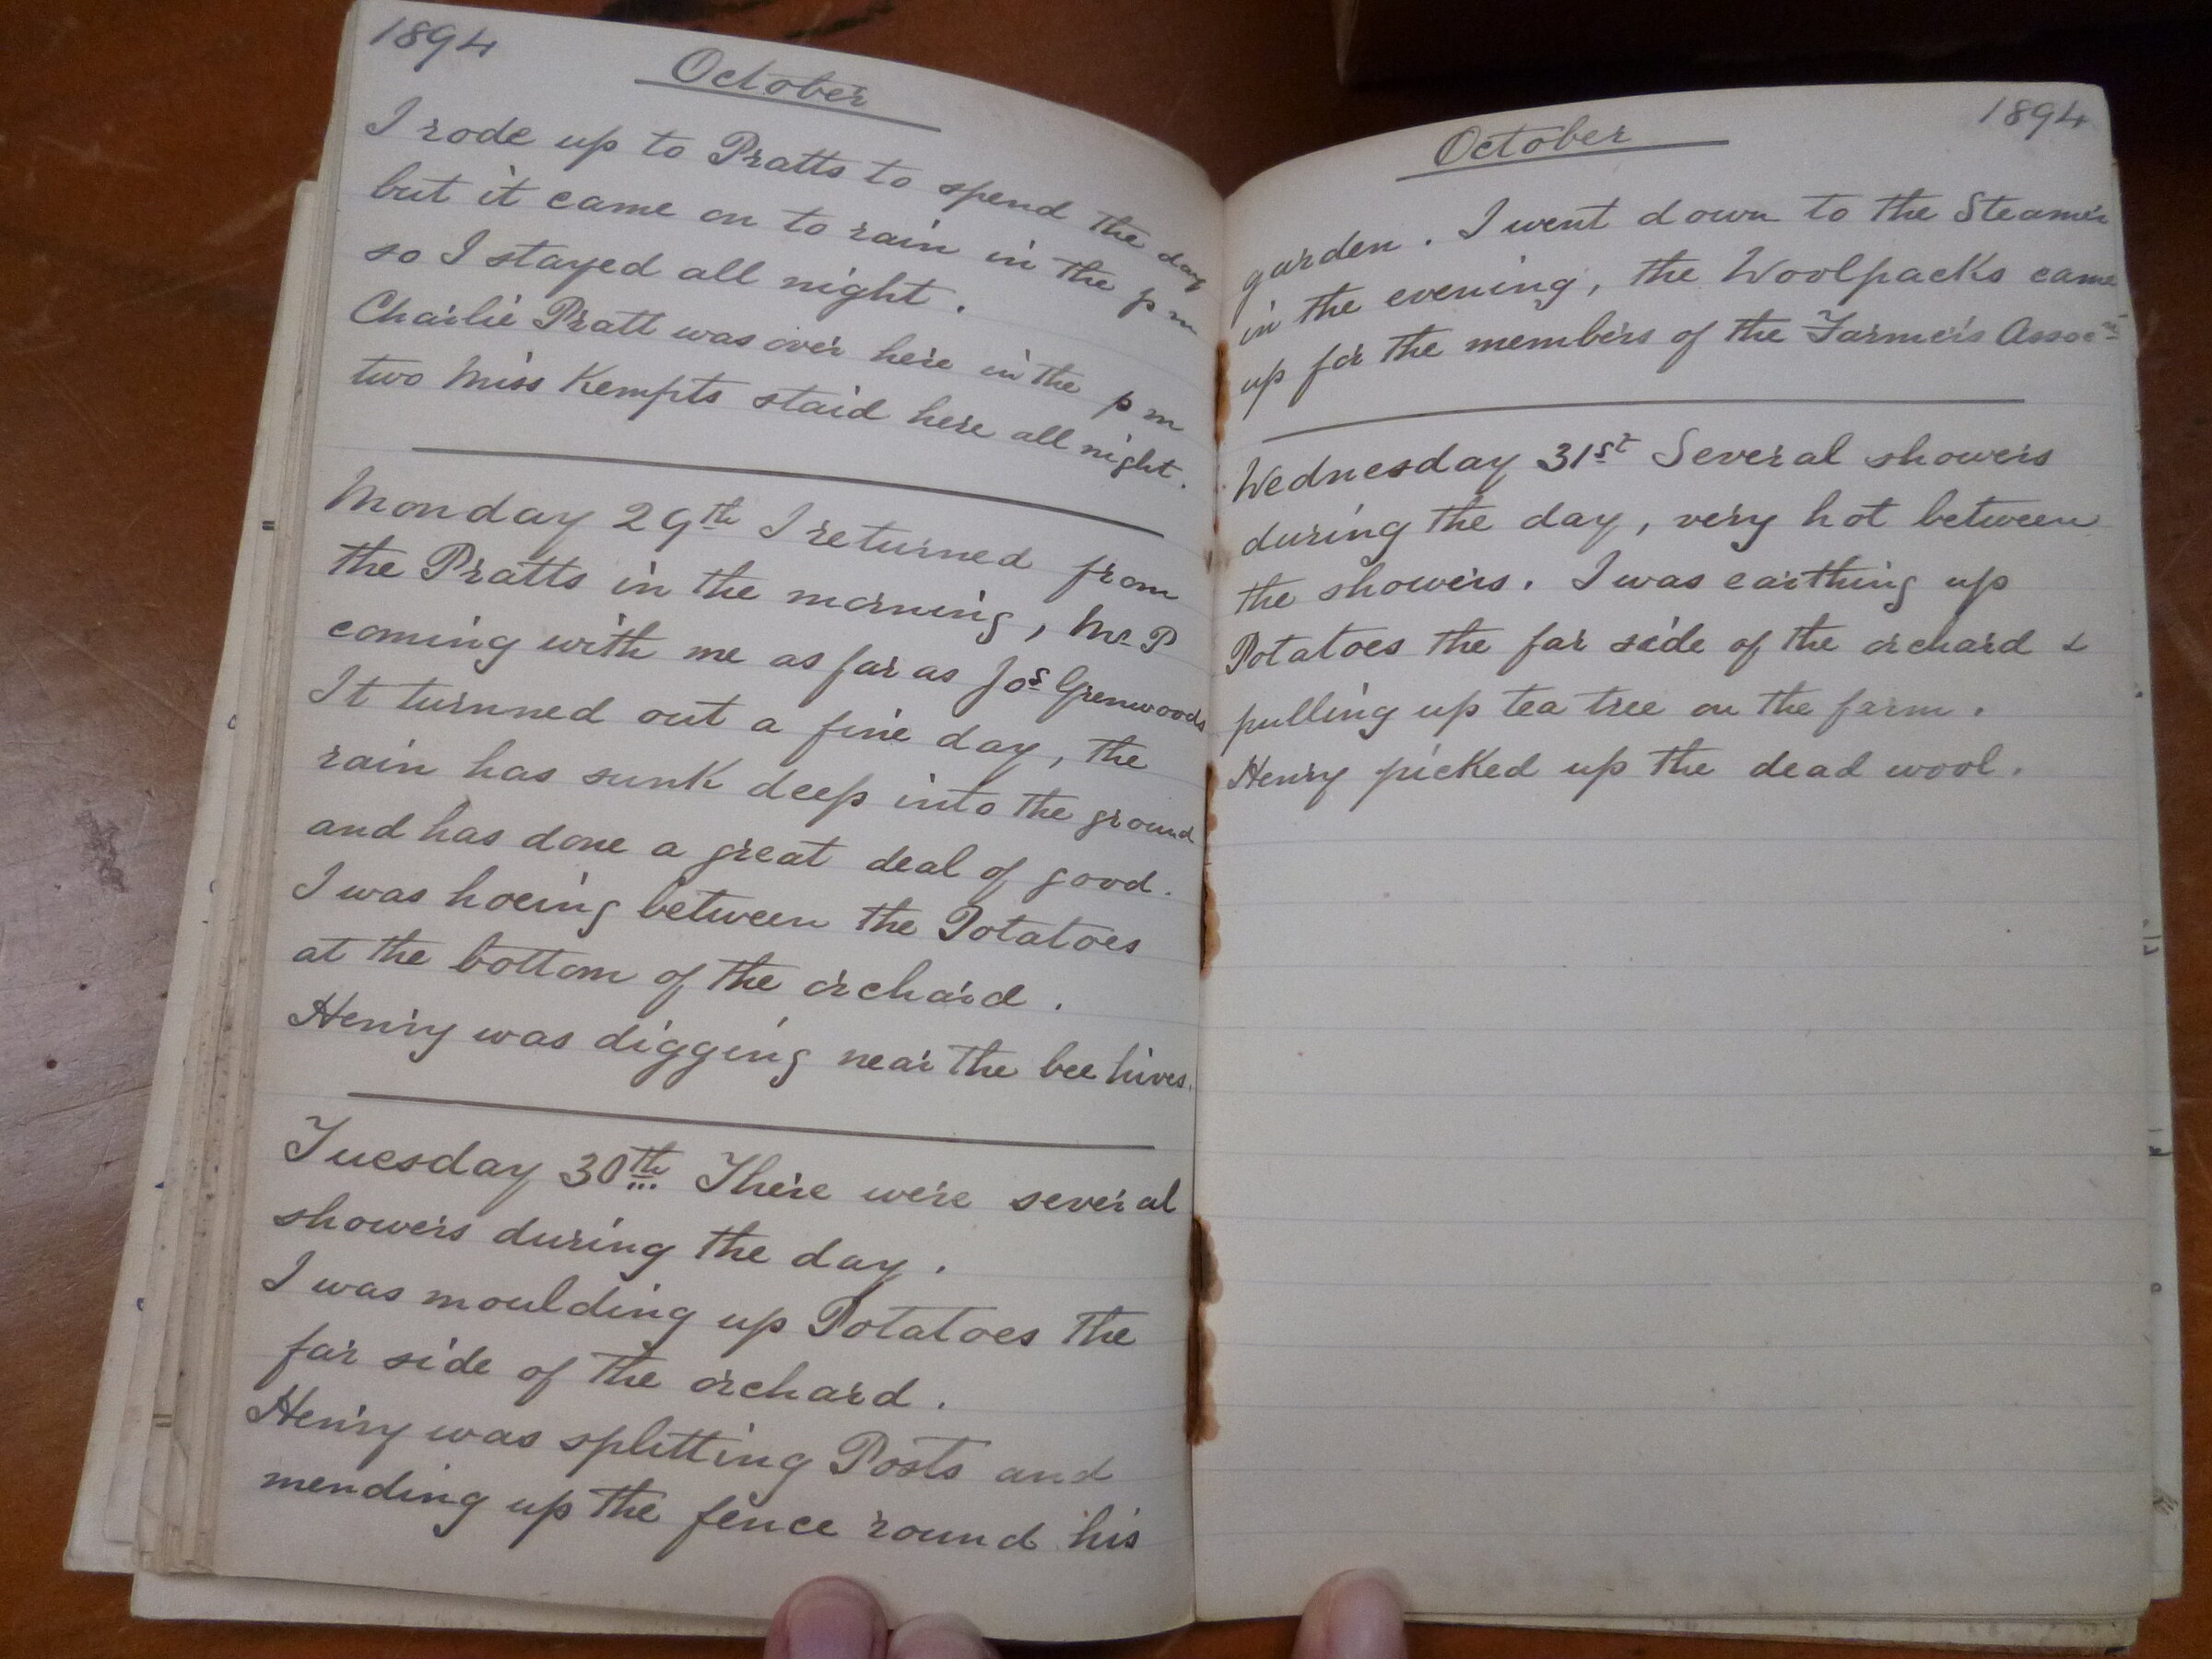 1894
October
I rode up to Pratts to spend the day
but it came on to rain in the p m
so I stayed all night.
Charlie Pratt was over here in the p m
two Miss Kempts staid here all night.
Monday 29th I returned from
the Pratts in the morning, Mr P
coming with me as far as Jos Grenwoods
It turnned out a fine day, the
rain has sunk deep into the ground
and has done a great deal of good.
I was hoeing between the Potatoes
at the bottom of the orchard.
Henry was digging near the bee hives.
Tuesday 30th There were several
showers during the day.
I was moulding up Potatoes the
far side of the orchard.
Henry was splitting Posts and
mending up the fence round his
October
1894
garden. I went down to the Steamer
in the evening, the Woolpacks came
up for the members of the Farmers Assocn
Wednesday 31st Several showers
during the day, very hot between
the showers. I was earthing up
Potatoes the far side of the orchard &
pulling up tea tree on the farm.
Henry picked up the dead wool.